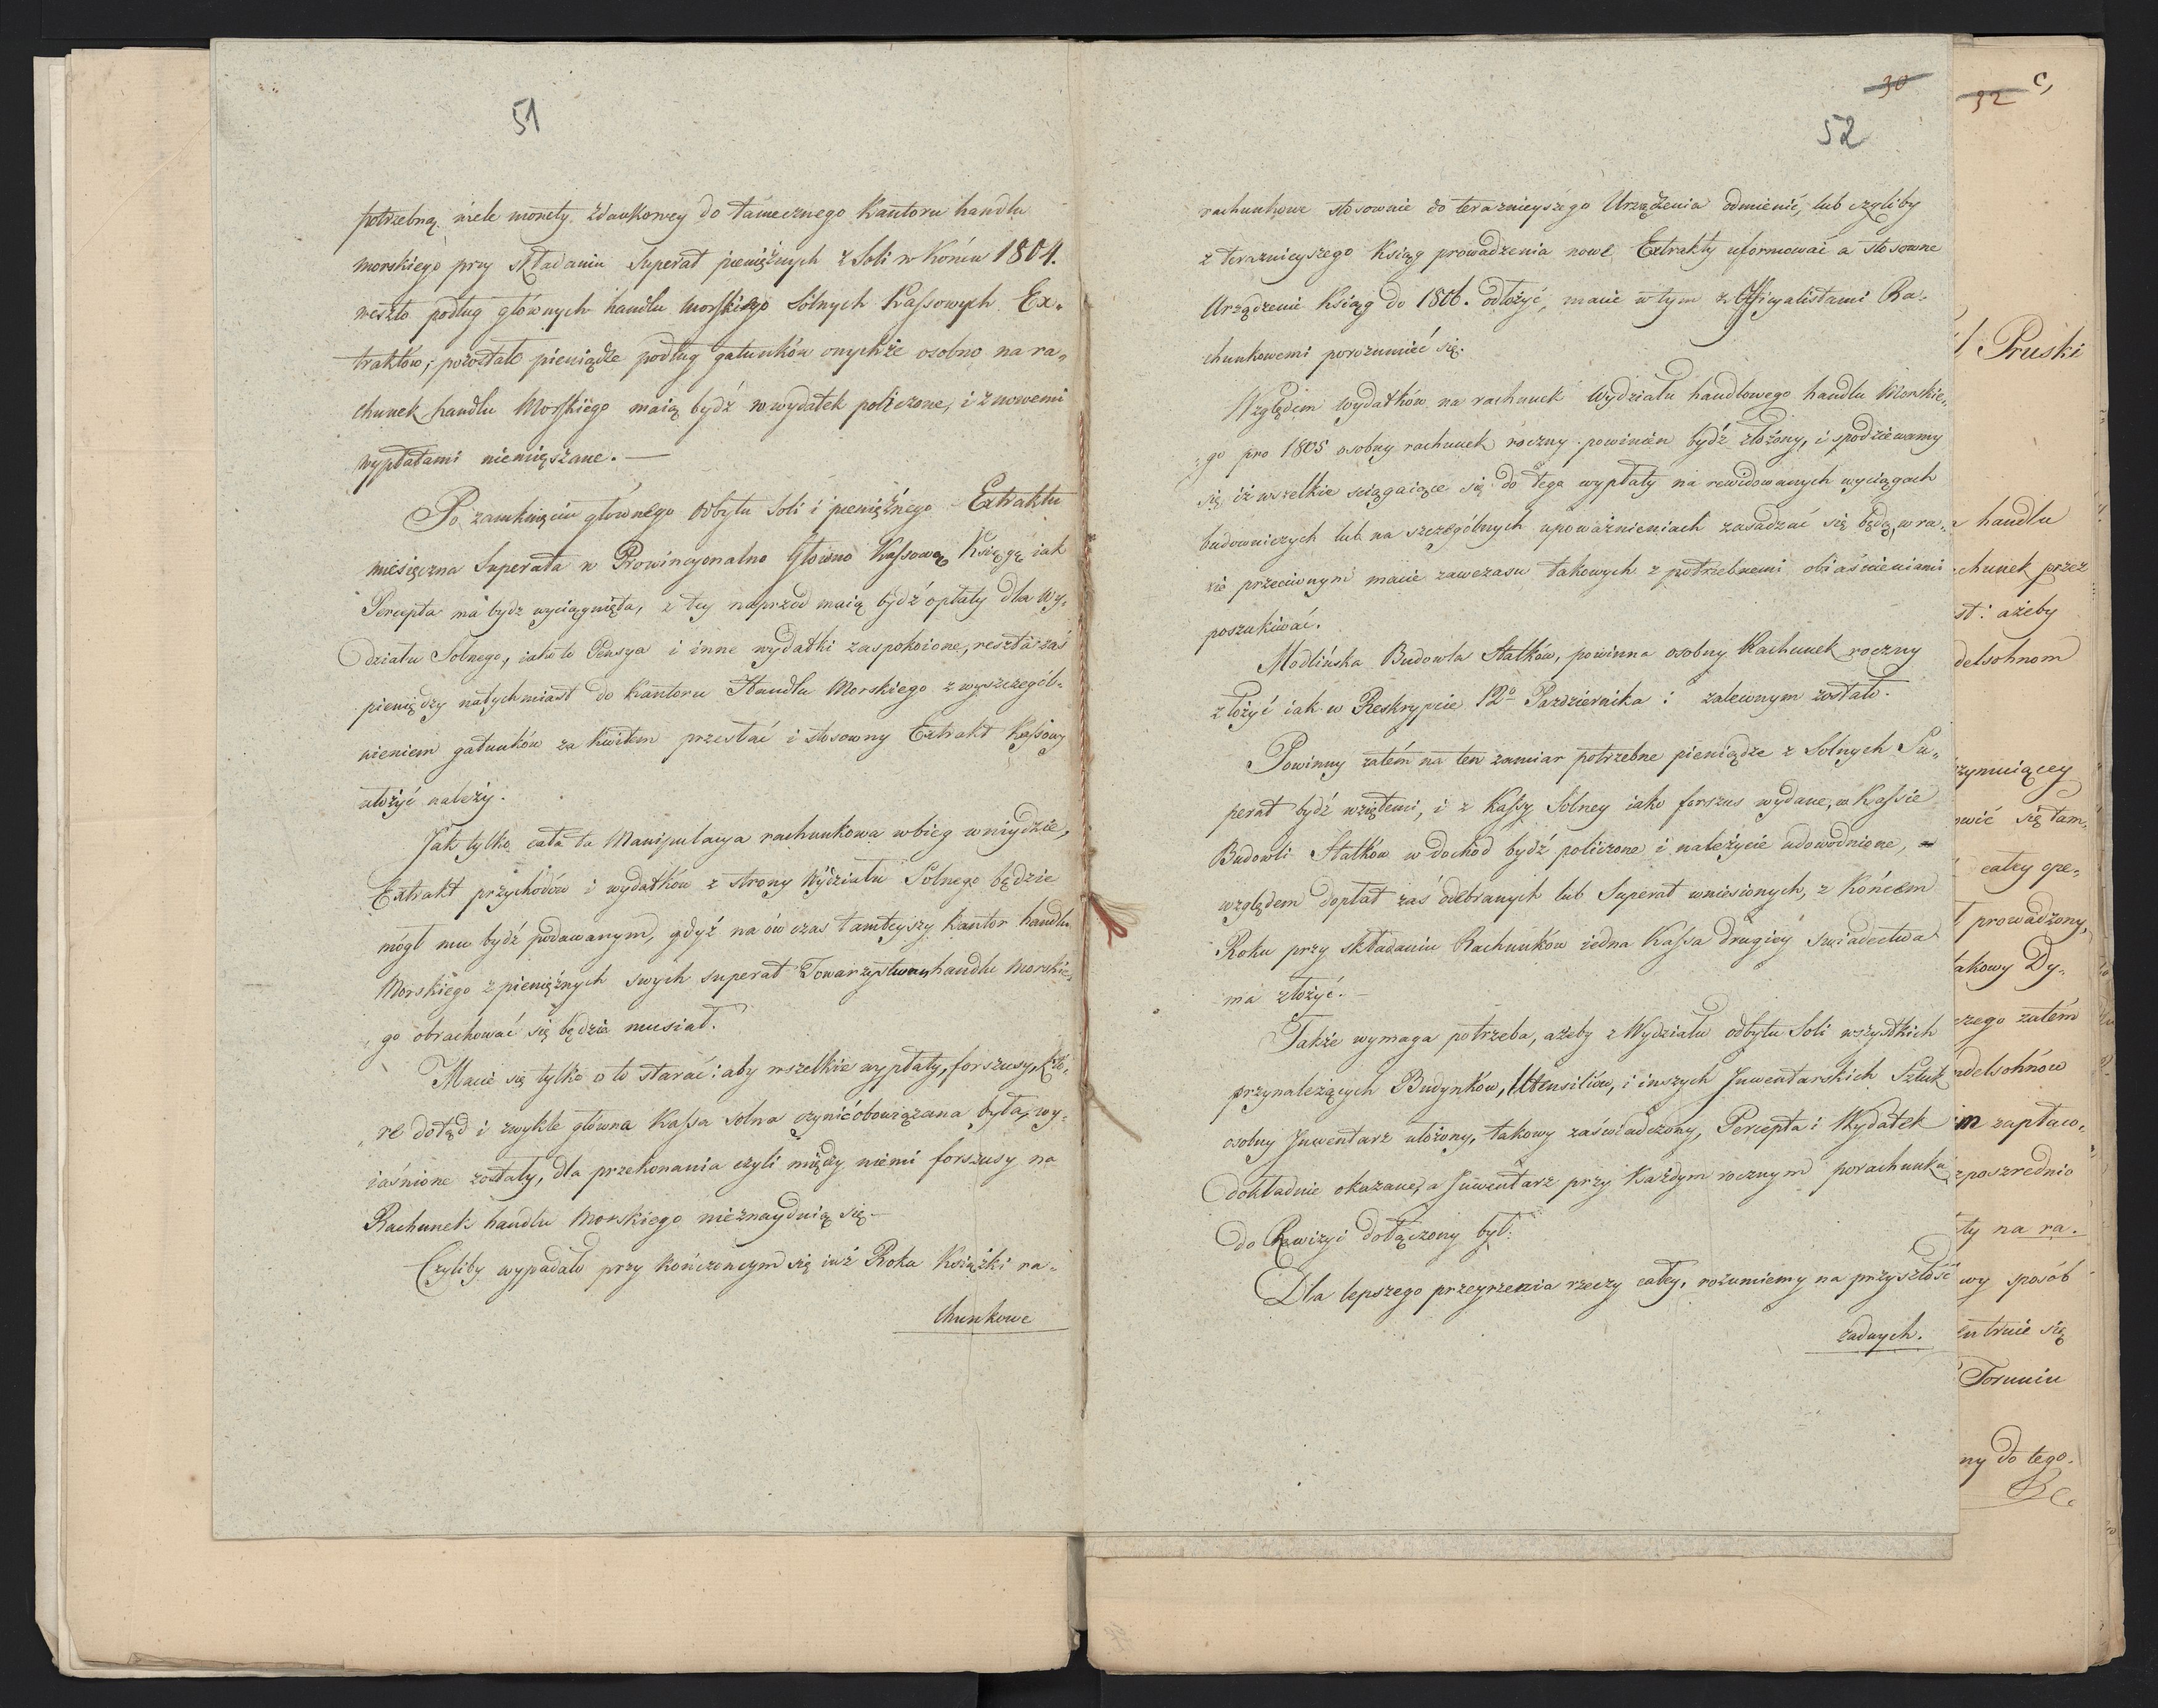 51
potrzebną niele monety zdawkowey do tamecznego Kantoru handlu
morskiego przy składaniu Superat pieniężnych z Soli w Końcu 1804.
reszto podług głównych handlu morskiego Solnych Kassowych Ex-
traktów, pozostałe pieniądze podług gatunków onychże osobno na ra-
chunek handlu Morskiego maią bydź w wydatek policzone, i z nowemi
wypłatami niemięszane. —
Po zamknięciu głównego odbytu Soli i pieniężnego Extraktu
miesięczna Superata w Prowincyonalno Główno Kassową Księgę iak
Percepta ma bydz wyciągnięta, z tey naprzod maią bydź opłaty dla Wy-
działu Solnego, iako to Pensya i inne wydatki zaspokoione, reszta zaś
pieniędzy natychmiast do Kantoru Handlu Morskiego z wyszczegól-
nieniem gatunków za kwitem przesłać i stosowny Extrakt Kassowy
ułożyć należy.
Jak tylko cała ta Manipulacya rachunkowa w bieg wniydzie,
Extrakt przychodów i wydatków z strony Wydziału Solnego będzie
mógł mu bydź podawanym, gdyż na ów czas tamteyszy Kantor handlu
Morskiego z pieniężnych swych superat Towarzystwem handlu Morskie-
go obrachować się będzie musiał.
Macie się tylko o to starać: aby wszelkie wypłaty, forszusy, któ-
re dotąd i zwykle główna Kassa Solna czynić obowiązana była, wy-
iaśnione zostały, dla przekonania czyli między niemi forszusy na
Rachunek handlu Morskiego nieznayduią się.—
Czyliby wypadało przy kończonczym się iuż Roku Książki ra-
chunkowe
30
52
rachunkowe stosownie do teraznieyszego Urządzenia odmienić, lub czyliby
z teraznieyszego Ksiąg prowadzenia nowe Extrakty uformować a stosowne
Urządzenie Ksiąg do 1806. odłożyć, macie w tym z Officyalistami Ra-
chunkowemi porozumieć się.
Względem wydatków na rachunek Wydziału handlowego handlu Morskie-
go pro 1805 osobny rachunek roczny powinien bydź złożony, i spodziewamy
się iż wszelkie sciągaiące się do tego wypłaty na rewidowanych wyciągach
budowniczych lub na szczególnych upoważnieniach zasadzać się będą, w ra-
zie przeciwnym macie zawczasu takowych z potrzebnemi obiaśnieniami
poszukiwać.
Modlińska Budowla Statków, powinna osobny Rachunek roczny
złożyć iak w Reskrypcie 12º Pazdziernika: zalewnym zostało.
Powinny zatém na ten zamiar potrzebne pieniądze z Solnych Su-
perat bydź wziętemi, i z Kassy Solney iako forszus wydane, w Kassie
Budowli Statków w dochod bydź policzone i należycie udowodnione,
względem dopłat zaś odebranych lub Superat wniesionych, z Końcem
Roku przy składaniu Rachunków iedna Kassa drugiey swiadectwa
ma złożyć.—
Także wymaga potrzeba, ażeby z Wydziału odbytu Soli wszystkich
przynależących Budynków, Utensiliów, i inszych Inwentarskich Sztuk
osobny Inwentarz ułożony, takowy zaświadczony, Percepta i Wydatek
dokładnie okazane, a Inwentarz przy Każdym rocznym porachunku
do Rewizyi dołączony był.
Dla lepszego przeyrzenia rzeczy całey, rozumiemy na przyszłość
zadnych.
32 c,
Pruski
handlu
chunek przez
st: ażeby
delsohnom
zymuiącey
owić się tam-
całey ope-
prowadzony,
takowy Dy-
czego zatém
ndelsohnów
im zapłaco-
zposzrednio
ty na ra.
wy sposób
entruie się
Toruniu
ny do tego.